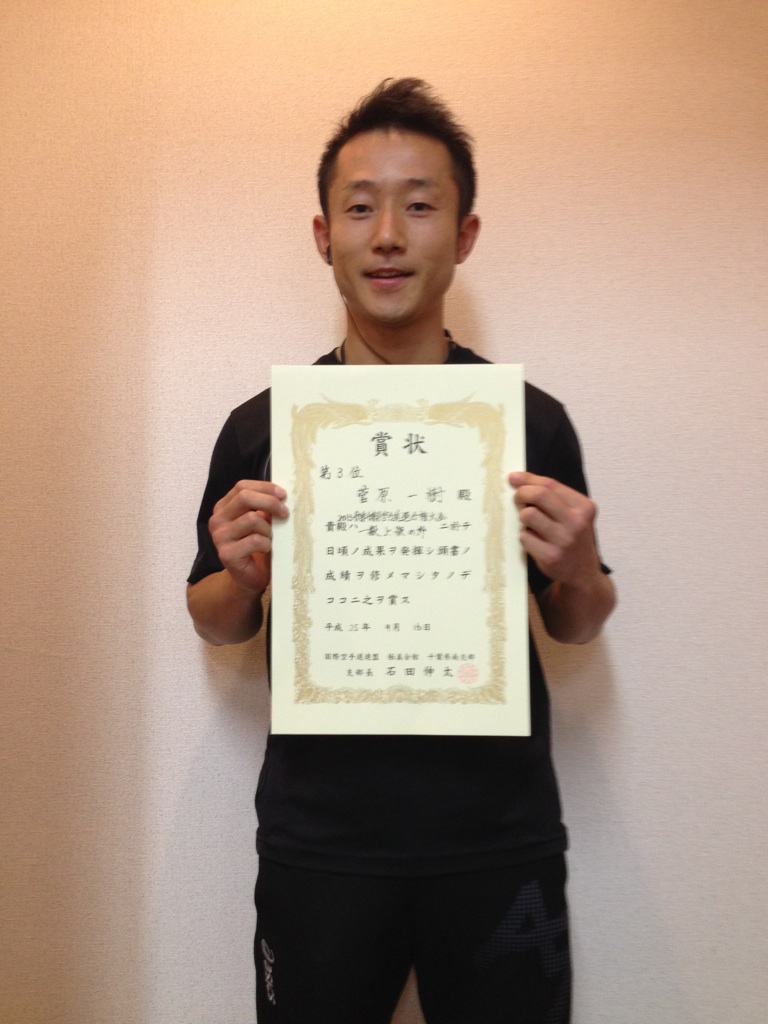 賞状
第3位
菅原 一樹 殿
貴殿ハ 一般上級の部 ニ於テ
日頃ノ成果ヲ発揮シ頭書ノ
成績ヲ修メマシタノデ
ココニ之ヲ賞ス
平成 25年 月 16日
国際空手道連盟 極真会館 千葉県南支部
支部長 石田伸太
asics